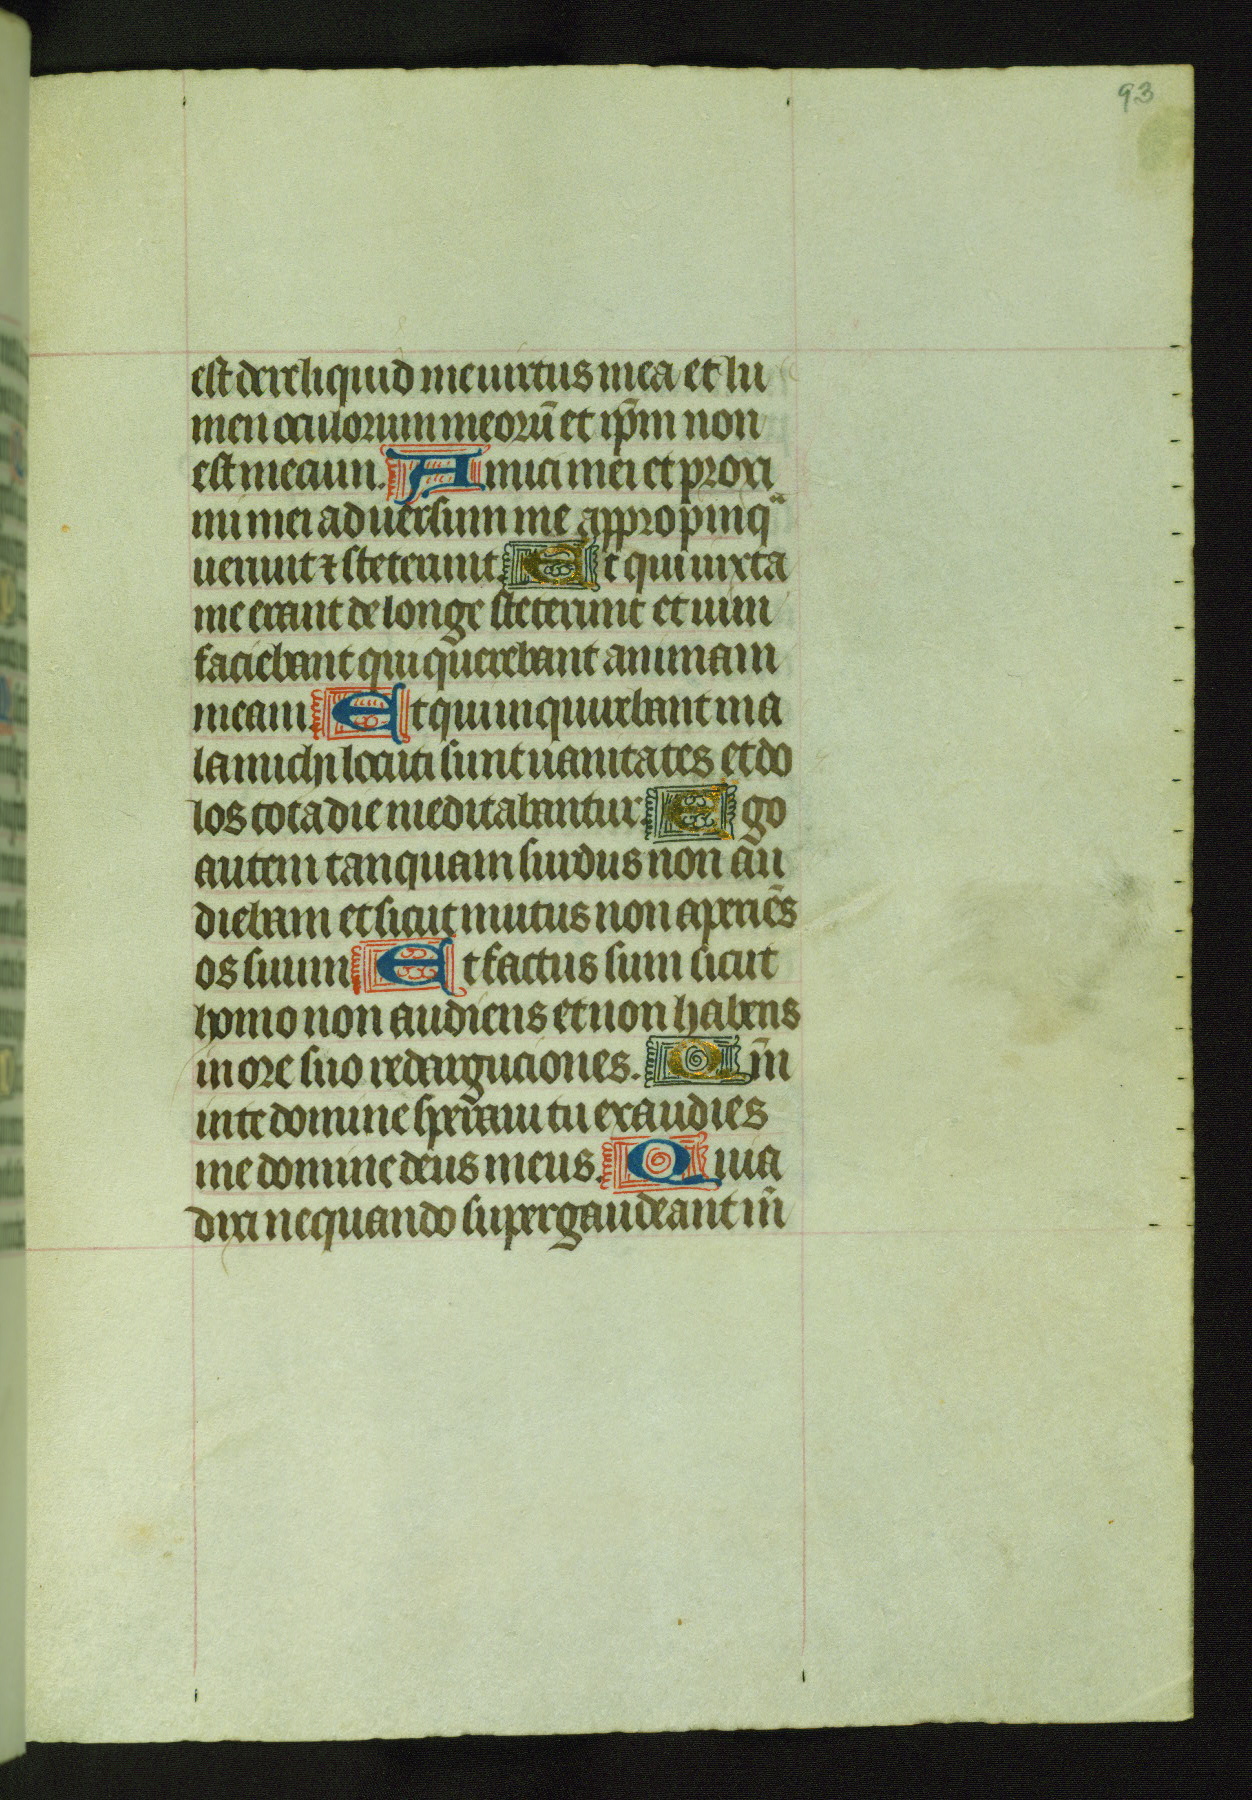 93
est dereliquid me uirtus mea et lu
men oculorum meorū et ip̄m non
est mecum. Amici mei et proxi
mi mei aduersum me appropinqͣ
uerunt ⁊ steterunt. Et qui iuxta
me erant de longe steterunt et uim
faciebant qui querebant animam
meam. Et qui inquirebant ma
la michi locuti sunt uanitates et do
los tota die meditabantur. Ego
autem tanquam surdus non au
diebam et sicut mutus non aperiēs
os suum. Et factus sum sicut
homo non audiens et non habens
in ore suo redarguciones. Qm̄
in te domine sperāui tu exaudies
me domine deus meus. Quia
dixi nequando supergaudeant m̄